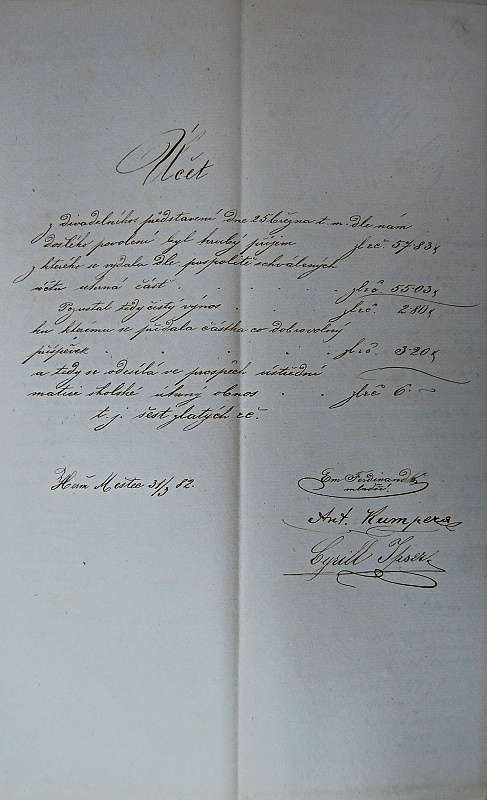 Účet
z divadelního představení dne 25 března t. m. dle nám
došlého povolení byl hrubý příjem zl. rč. 57·83 k
z kterého se vydala dle pospolitě schválených
účtů úhrna část . . . . zl. rč. 55·03 k
Pozustal tedy čistý výnos . . . zl. rč. 2·80 k
ku kterému se přidala částka co dobrovolný
příspěvek . . . . . zl. rč 3·20 k
a tedy se odesílá ve prospěch ústřední
matice školské úhrný obnos . . zl. rč 6 ·–
t. j. šest zlatých rč.
Heřm Městec 31/3 82.
Em Ferdinand
mladší.
Ant. Kumpera
Cyrill Ipser